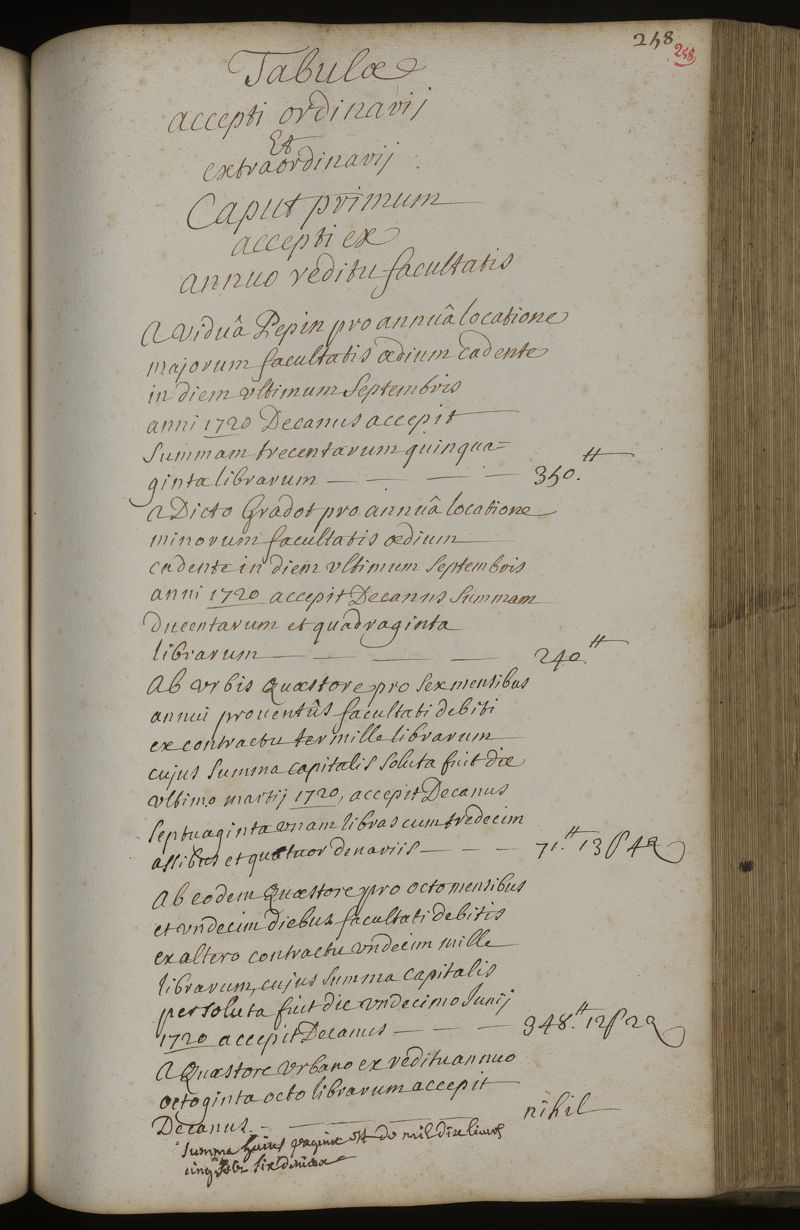 248
248
Tabulæ
accepti ordinarij
Et
extraordinarij
Caput primum
accepti ex
annuo reditu facultatis
A Viduâ Pepin pro annuâ locatione
majorum facultatis ædium cadente
in diem vltimum Septembris
anni 1720 Decanus accepit
Summam trecentarum quinqua=
ginta librarum — — — — 350.tt
A Dicto Gradot pro annuâ locatione
minorum facultatis ædium
cadente in diem vltimum Septembris
anni 1720 accepit Decanus Summam
Ducentarum et quadraginta
librarum — — — — 240.tt
Ab Vrbis Quæstore pro Sex mensibus
annui prouentûs facultati debiti
ex contractu ter mille librarum
cujus Summa capitalis soluta fuit die
vltimo martij 1720, accepit Decanus
Septuaginta vnam libras cum tredecim
assibus et quatuor denariis — — — 71.tt 13 ſ 4 d
Ab eodem Quæstore pro octo mensibus
et vndecim diebus facultati debitis
ex altero contractu vndecim mille
librarum, cujus Summa capitalis
persoluta fuit die vndecimo Junij
1720 accepit Decanus — — — 348.tt 12 ſ 2 d
A Quæstore Vrbano ex reditu annuo
octoginta octo librarum accepit
Decanus. — nihil
Summa huius paginæ est de mil dix livres
cinq sols six deniers